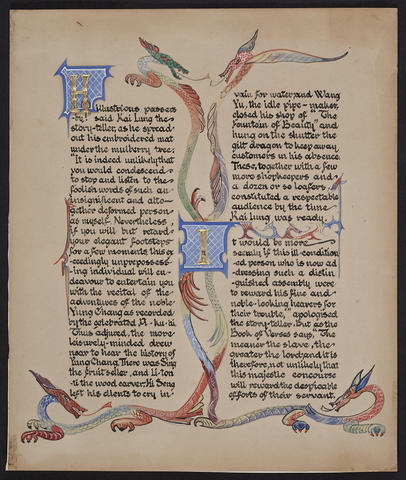 Ho illustrious passers
-by!" said Kai Lung the
story-teller, as he spread
out his embroidered mat
under the mulberry tree:
"It is indeed unlikely that
you would condescend
to stop and listen to the
foolish words of such an
insignificant and alto-
gether deformed person
as myself. Nevertheless
if you will but retard
your elegant footsteps
for a few moments, this ex
-ceedingly unprepossess-
-ing individual will en-
deavour to entertain you
with the recital of the
adventures of the noble
Yung Chang as recorded
by the celebrated
Thus adjured, the more
leisurely-minded drew
near to hear the history of
Yung Chang. There was Sing
the fruit seller, and Li-ton
-ti the wood carver; Hi Seng
left his clients to cry in
vain for water; and Wang
Yu, the idle pipe-maker,
closed his shop of "The
Fountain of Beauty" and
hung on the shutter the
gilt dragon to keep away
customers in his absence.
These, together with a few
more shopkeepers and
a dozen or so loafers,
constituted a respectable
audience by the time
Kai Lung was ready.
It would be more
seemly if this ill-condition
-ed person who is now ad
-dressing such a distin
-guished assembly were
to reward his fine and
noble-looking hearers for
their trouble," apologised
the story-teller. But as the
Book of Verses says, "The
meaner the slave, the
greater the lord; and it is
therefore, not unlikely that
this majestic concourse
will reward the despicable
efforts of their servant.